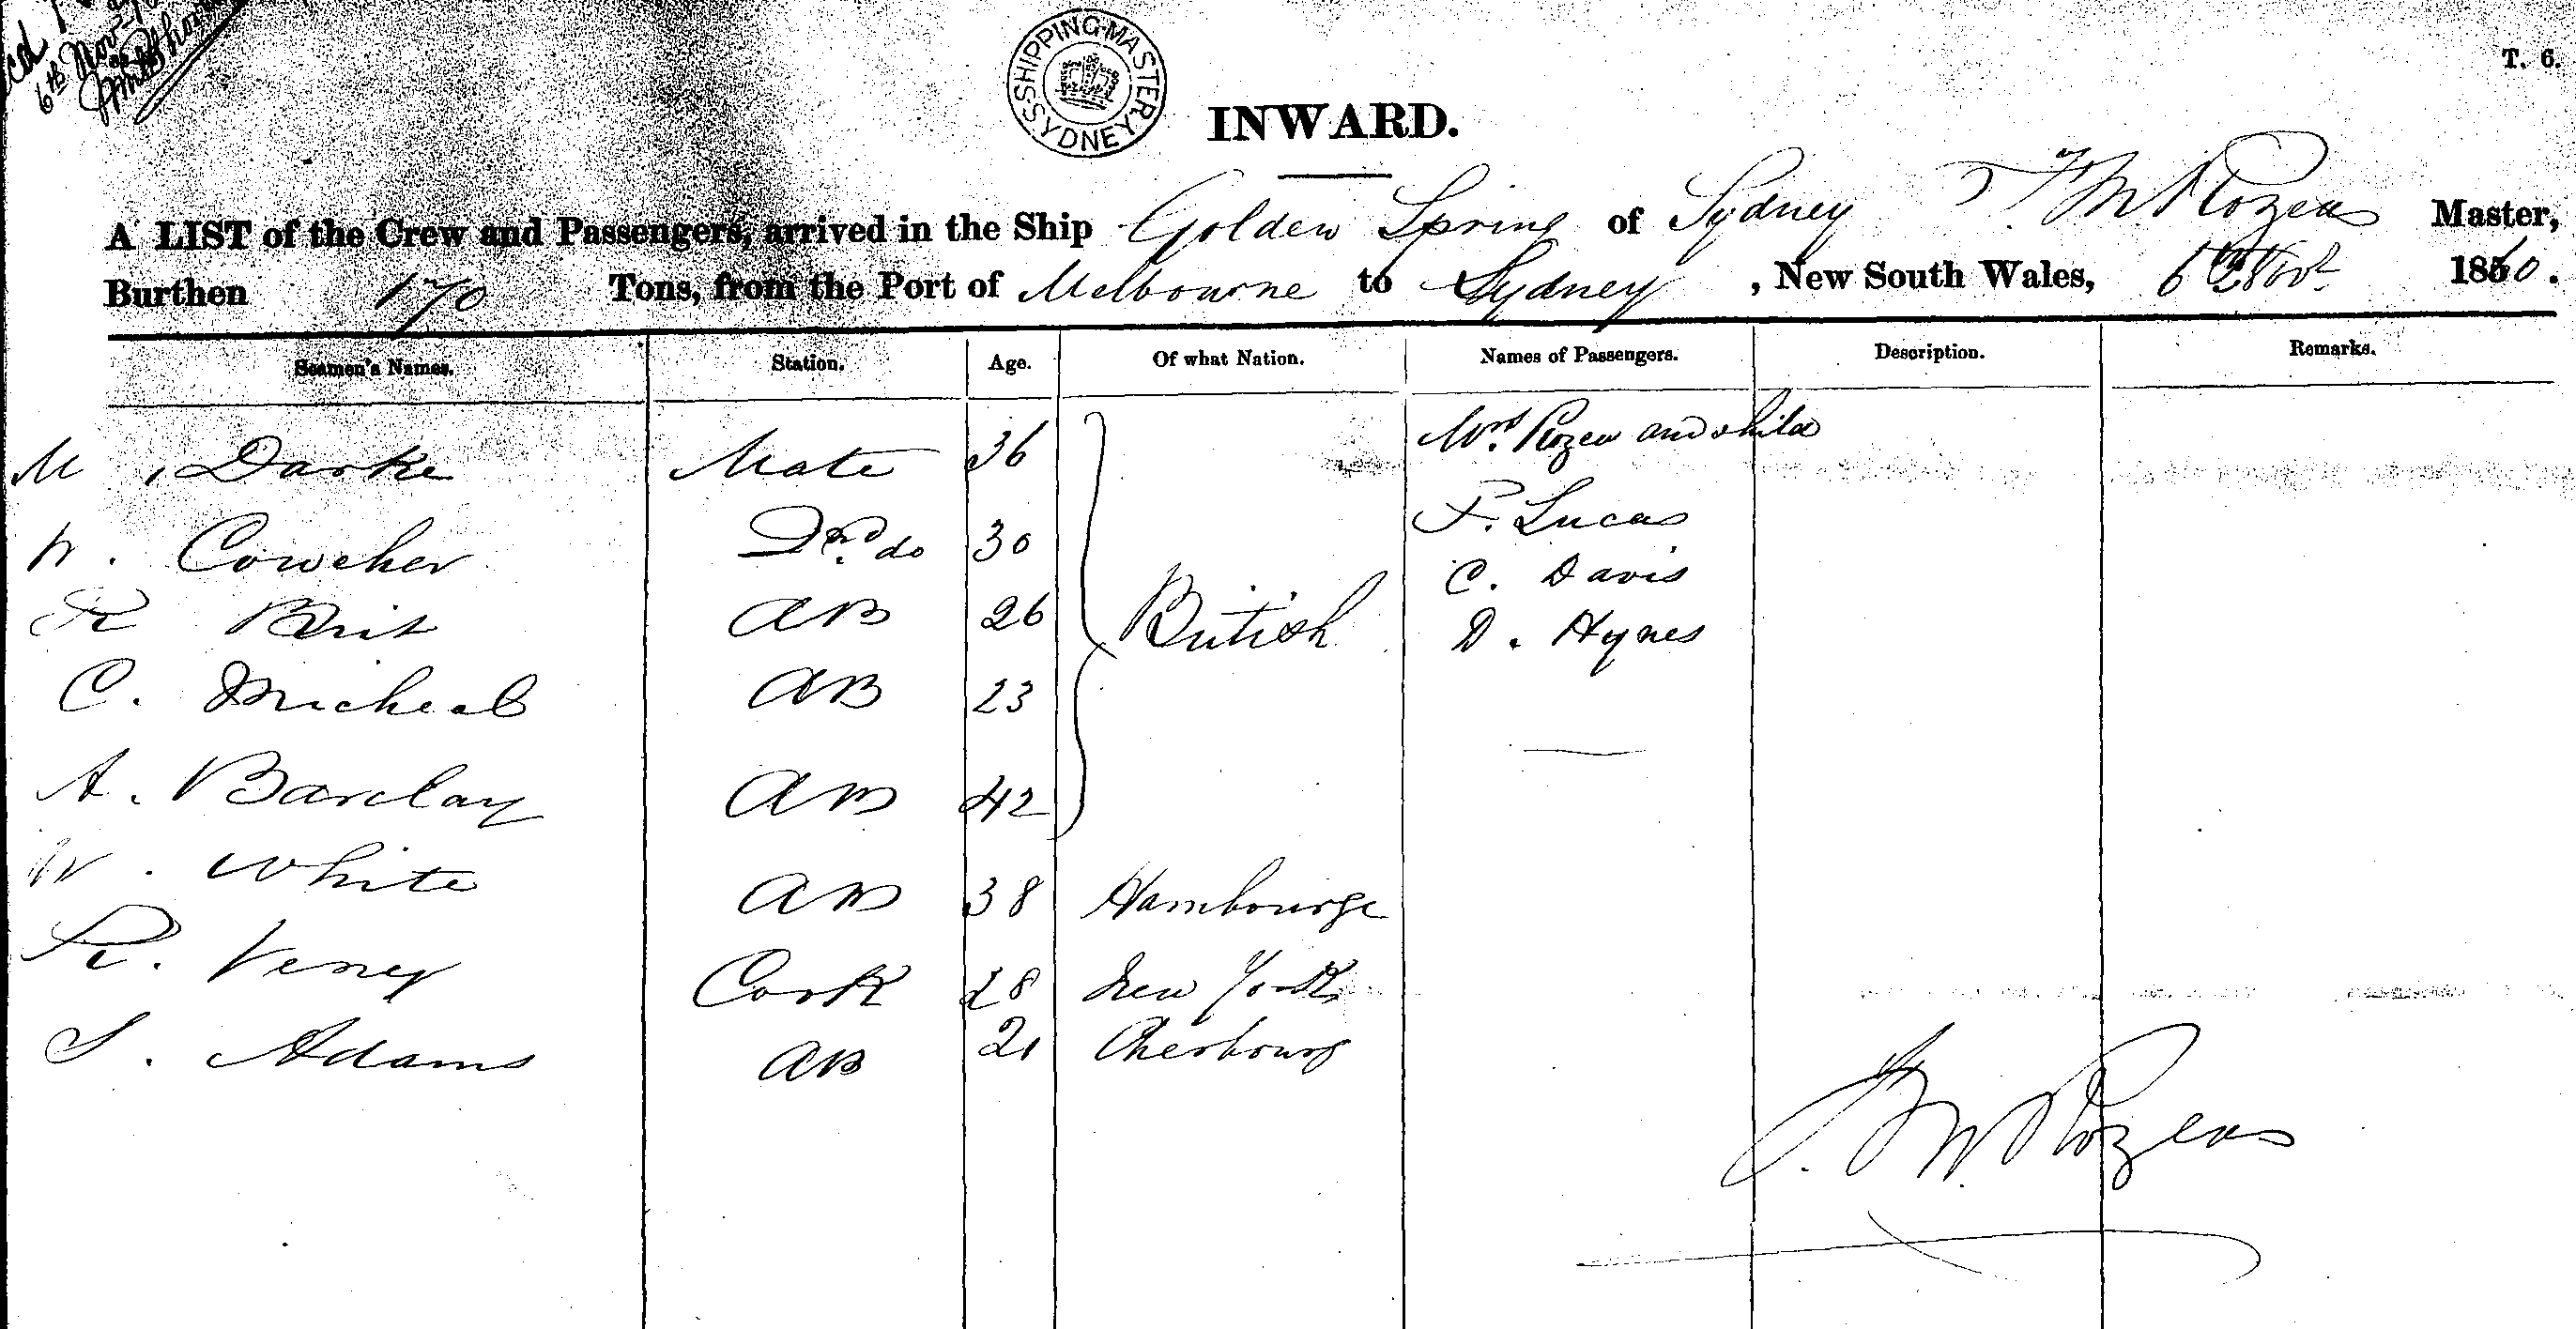 6th Nov
SHIPPING MASTER SYDNEY
T. 6.
INWARD.
A LIST of the Crew and Passengers, arrived in the Ship Golden Spring of Sydney T. M. Rozea Master,
Burthen 170 Tons, from the Port of Melbourne to Sydney, New South Wales, 6 Nov 1860.
Seamen's Names. Station. Age. Of what Nation. Names of Passengers. Description. Remarks.
M. Darke Mate 36 Mrs. Rozea and child
W. Cowcher 2nd do 30 P. Lucas
R Brit AB 26 British C. Davis
D. Hynes
C. Micheal AB 23
A. Barclay AB 42
W. White AB 38 Hambourge
R. Veney Cook 28 New York
S. Adams AB 21 Cherbourg